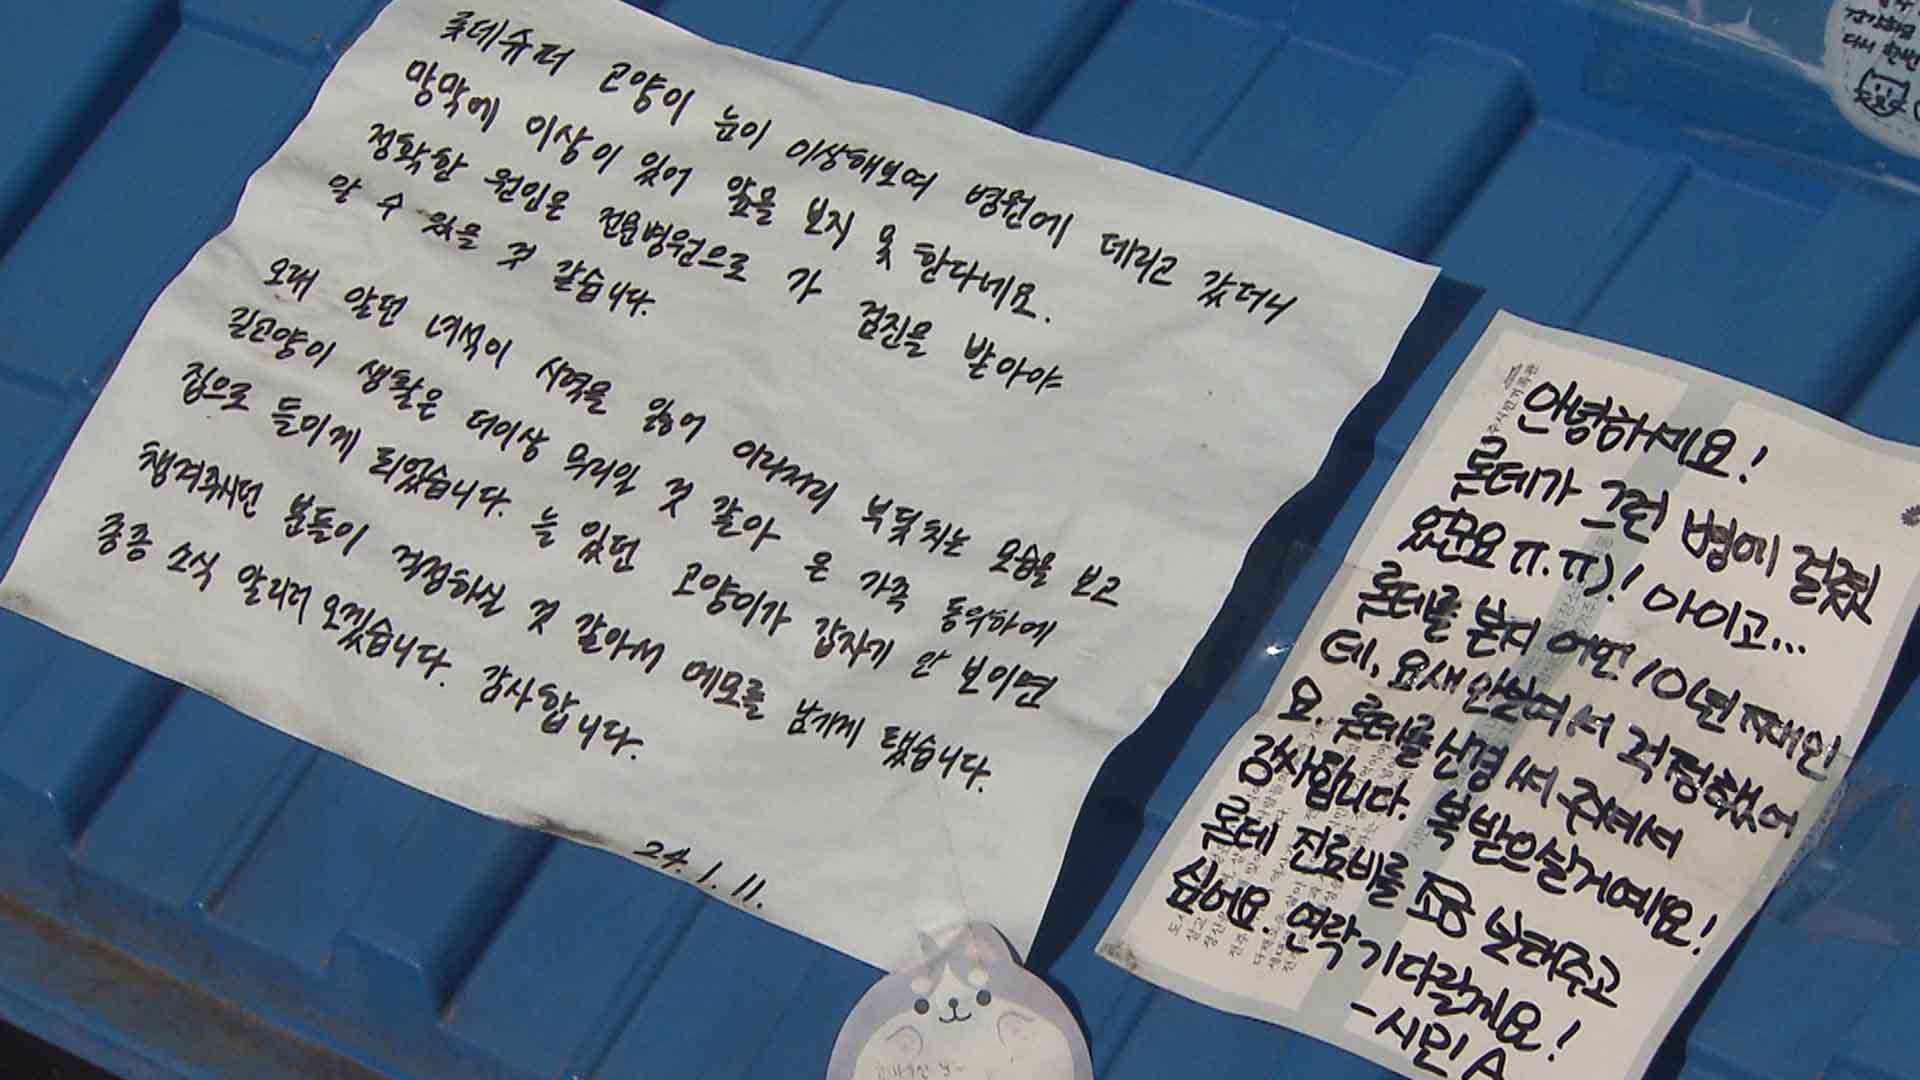 롯데슈퍼 고양이 눈이 이상해보여 병원에 데리고 갔더니
망막에 이상이 있어 앞을 보지 못 한다네요.
정확한 원인은 전문병원으로 가 검진을 받아야
알 수 있을 것 같습니다.
오래 알던 녀석이 시력을 잃어 이리저리 부딪치는 모습을 보고
길고양이 생활은 더이상 무리일 것 같아 온 가족 동의하에
집으로 들이게 되었습니다. 늘 있던 고양이가 갑자기 안 보이면
챙겨주시던 분들이 걱정하실 것 같아서 메모를 남기게 됐습니다.
종종 소식 알리러 오겠습니다. 감사합니다.
24. 1. 11.
안녕하세요!
롣데가 그런 병에 걸렸
었군요ㅠ.ㅠ)! 아이고...
롣데를 본지 어언 10년째인
데, 요새 안보여서 걱정했어
요. 롣데를 신경 써 주셔서
감사합니다. 복 받으실거예요!
롣데 진료비를 조금 보태주고
싶어요. 연락 기다릴게요!
-시민 A
건강하고
다시 한번